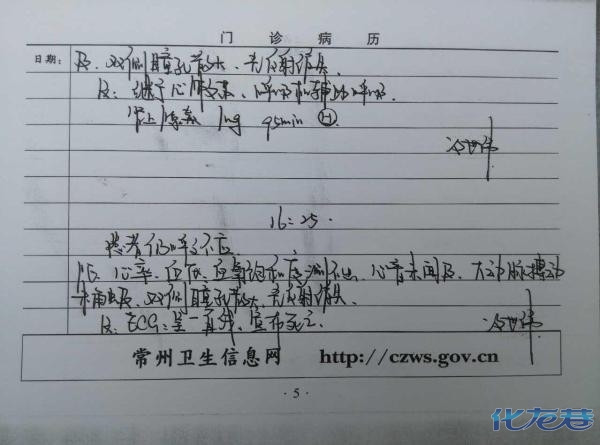 门 诊 病 历
日期:
及、双侧瞳孔散大、光反射消失.
R: 继予心肺复苏、呼吸机辅助呼吸.
肾上腺素 1mg q5min
16:25.
患者仍呼之不应.
心率、血压、血氧饱和度测不出、心音未闻及、大动脉搏动
未触及、双侧瞳孔散大、光反射消失、
R: ECG:呈一直线、宣布死亡.
常州卫生信息网 http://czws.gov.cn
· 5 ·
化龙巷